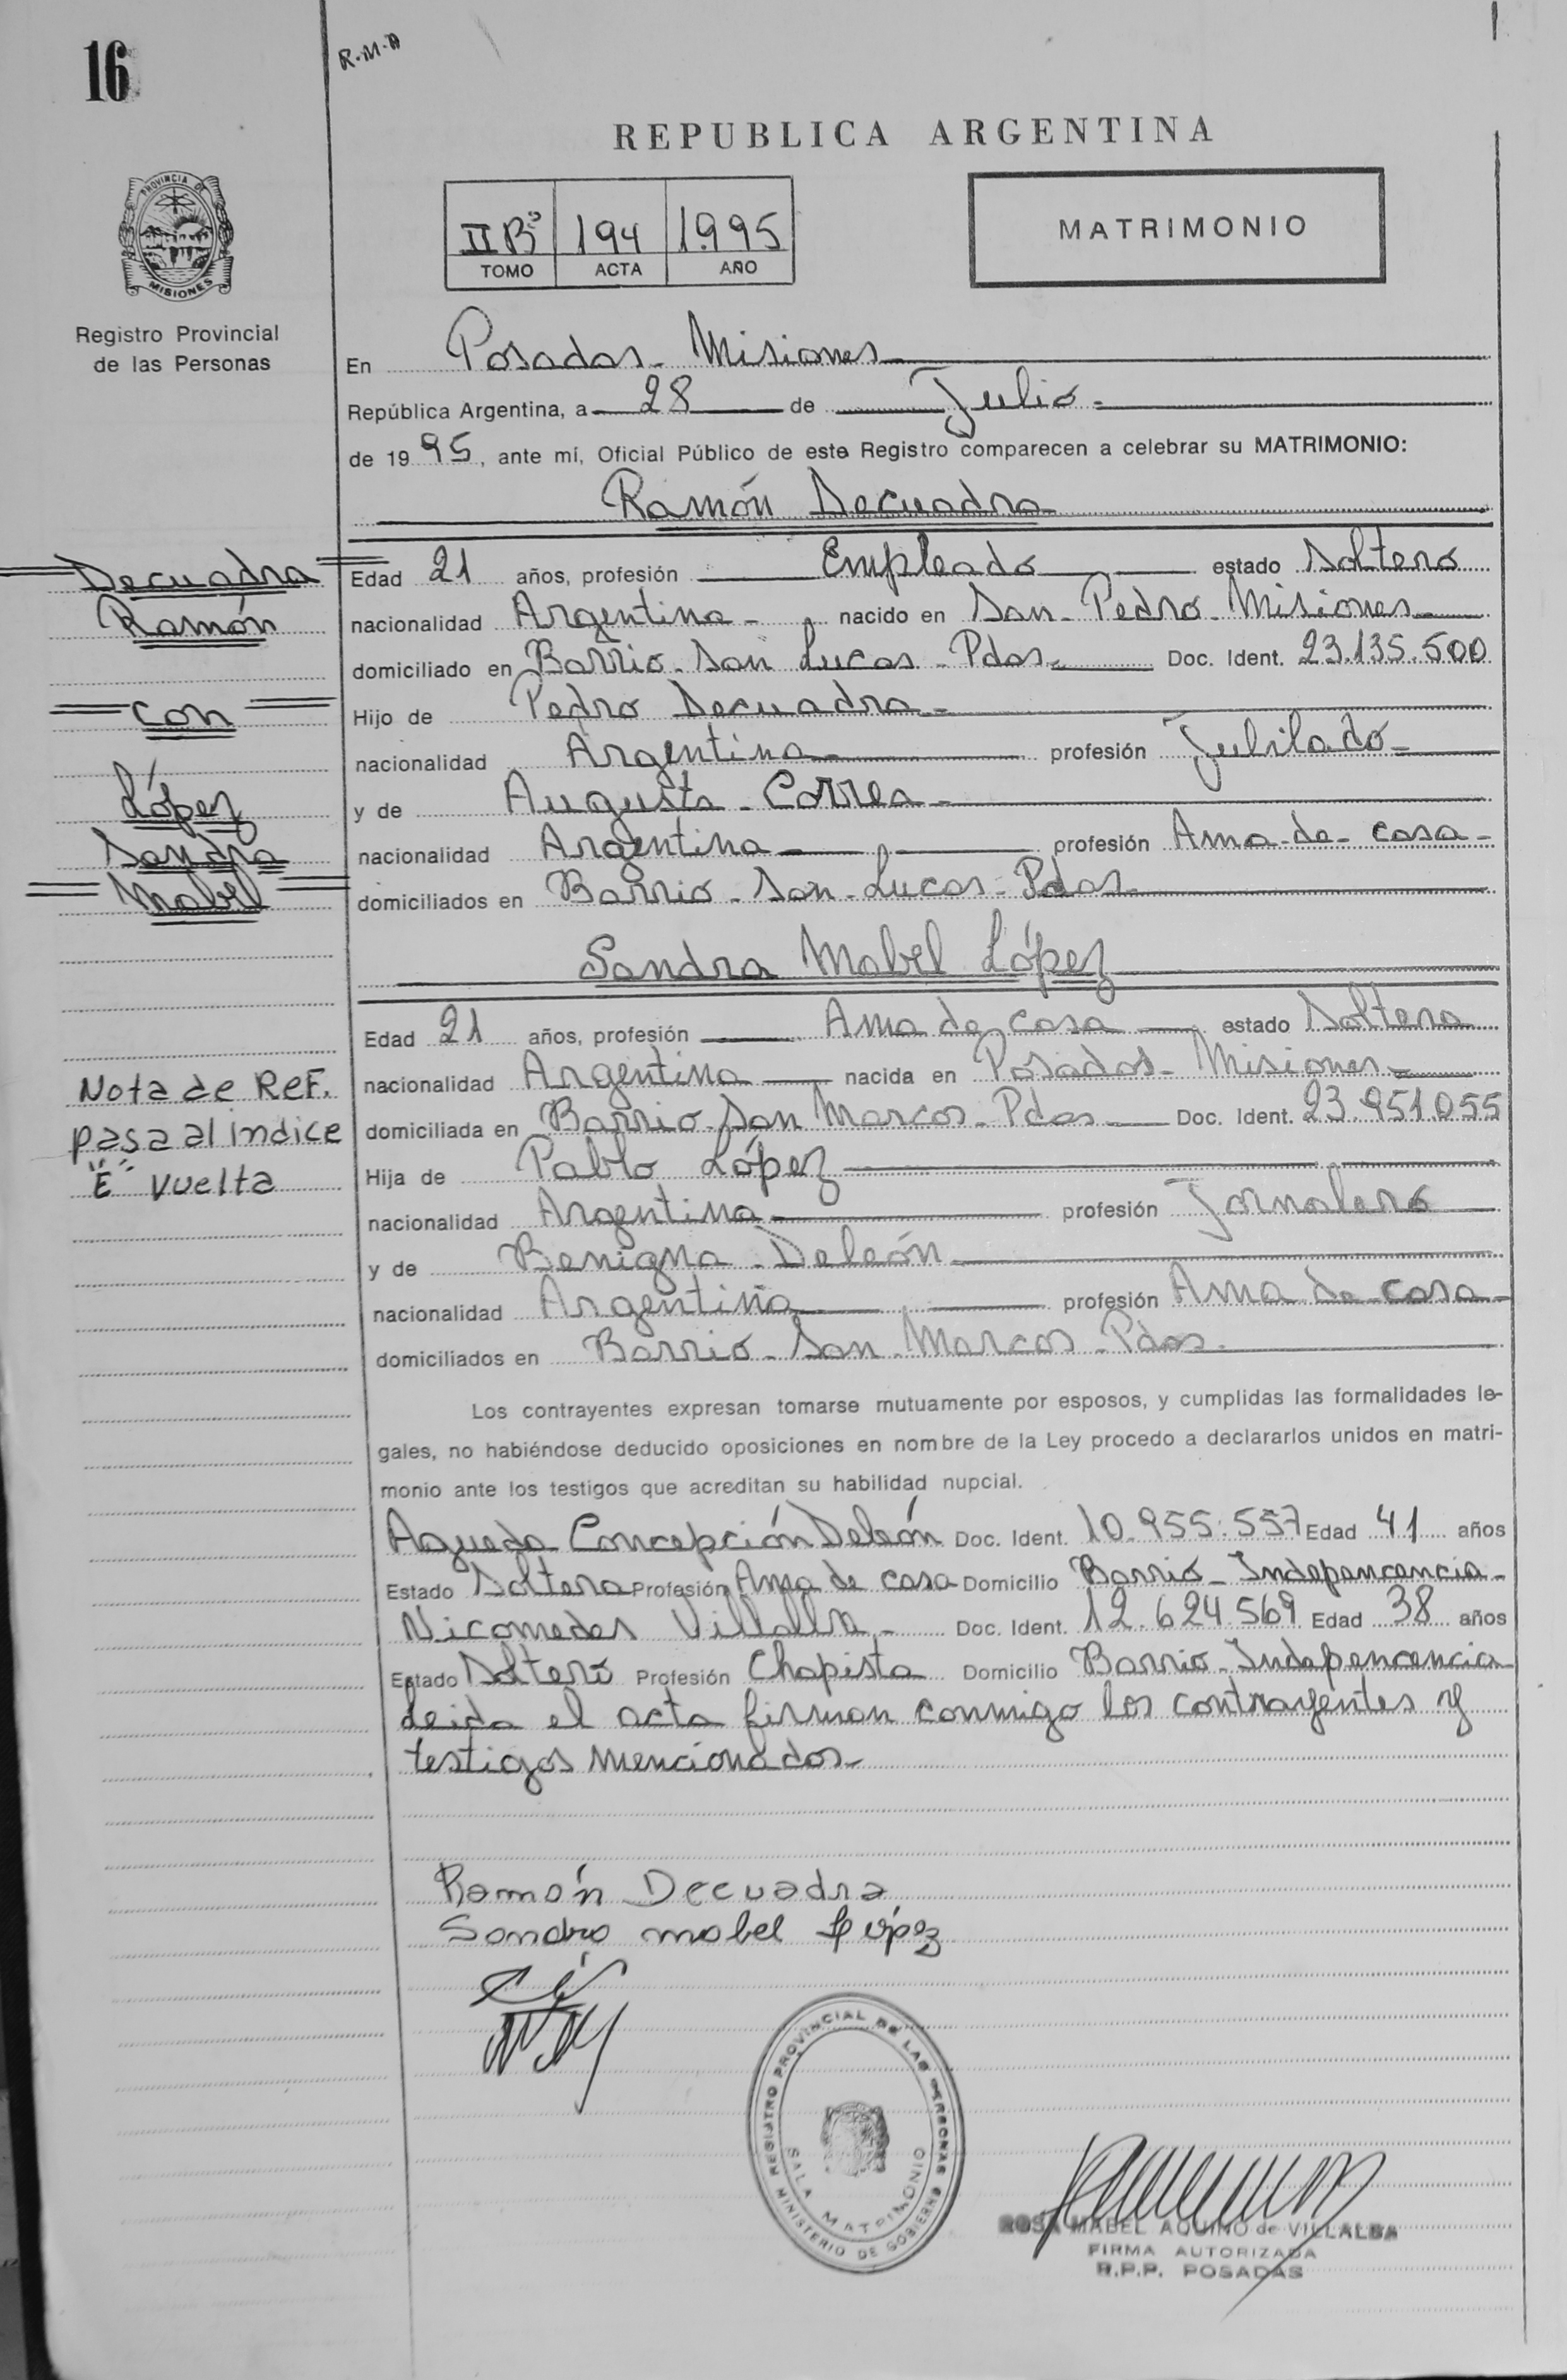 16
R.M.A
REPUBLICA ARGENTINA
PROVINCIA DE
MISIONES
II Bº 194 1995
TOMO ACTA AÑO
MATRIMONIO
Registro Provincial
de las Personas
En Posadas - Misiones
República Argentina, a 28 de Julio -
de 1995, ante mí, Oficial Público de este Registro comparecen a celebrar su MATRIMONIO:
Ramón Decuadra
Decuadra
Ramón
con
López
Sandra
Mabel
Edad 21 años, profesión Empleado estado Soltero
nacionalidad Argentina - nacido en San - Pedro - Misiones -
domiciliado en Barrio - San Lucas - Pdas - Doc. Ident. 23.135.500
Hijo de Pedro Decuadra -
nacionalidad Argentina - profesión Jubilado -
y de Augusta - Correa -
nacionalidad Argentina - profesión Ama - de - casa -
domiciliados en Barrio - San - Lucas - Pdas -
Sandra Mabel López
Edad 21 años, profesión Ama de casa estado Soltera
nacionalidad Argentina nacida en Posadas - Misiones -
domiciliada en Barrio - San Marcos - Pdas - Doc. Ident. 23.951.055
Hija de Pablo López
nacionalidad Argentina - profesión Jornalero
y de Benigna - Deleón -
nacionalidad Argentina profesión Ama de casa -
domiciliados en Barrio - San - Marcos - Pdas -
Nota de Ref.
pasa al indice
"E" vuelta
Los contrayentes expresan tomarse mutuamente por esposos, y cumplidas las formalidades le-
gales, no habiéndose deducido oposiciones en nombre de la Ley procedo a declararlos unidos en matri-
monio ante los testigos que acreditan su habilidad nupcial.
Agueda Concepción Deleón Doc. Ident. 10.955.557 Edad 41 años
Estado Soltera Profesión Ama de casa Domicilio Barrio - Indepencencia -
Nicomedes Villalba - Doc. Ident. 12.624.569 Edad 38 años
Estado Soltero Profesión Chapista Domicilio Barrio - Indepencencia
Leida el acta firman conmigo los contrayentes y
testigos mencionados -
Ramón Decuadra
Sandra mabel López
REGISTRO PROVINCIAL DE LAS PERSONAS
SALA MATRIMONIO
MINISTERIO DE GOBIERNO
ROSA MABEL AQUINO de VILLALBA
FIRMA AUTORIZADA
R.P.P. POSADAS